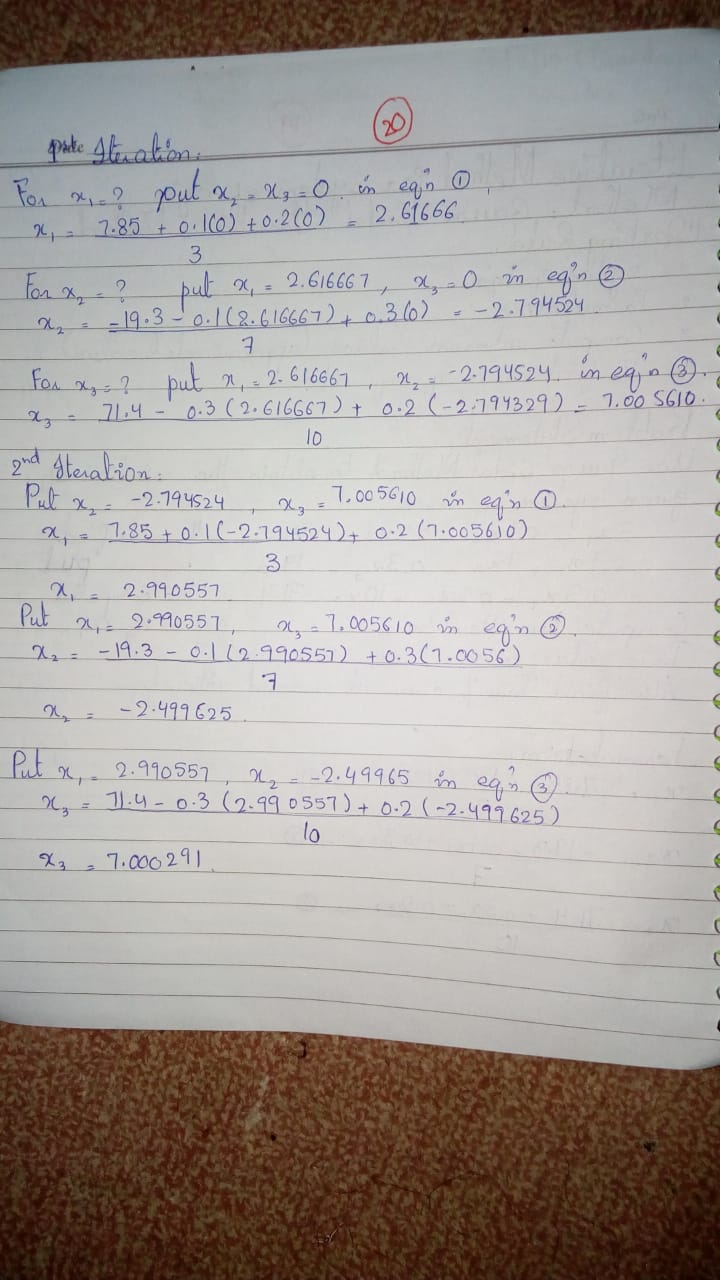 20
Iteration:
For x₁ = ? put x₂ = x₃ = 0 in eq'n ①,
x₁ = 7.85 + 0.1(0) + 0.2(0) = 2.61666
3
For x₂ = ? put x₁ = 2.616667, x₃ = 0 in eq'n ②
x₂ = -19.3 - 0.1(2.616667) + 0.3(0) = -2.794524
7
For x₃ = ? put x₁ = 2.616667, x₂ = -2.794524 in eq'n ③.
x₃ = 71.4 - 0.3(2.616667) + 0.2(-2.794329) = 7.005610.
10
2nd Iteration:
Put x₂ = -2.794524, x₃ = 7.005610 in eq'n ①.
x₁ = 7.85 + 0.1(-2.794524) + 0.2(7.005610)
3
x₁ = 2.990557
Put x₁ = 2.990557, x₃ = 7.005610 in eq'n ②.
x₂ = -19.3 - 0.1(2.990557) + 0.3(7.0056)
7
x₂ = -2.499625
Put x₁ = 2.990557, x₂ = -2.49965 in eq'n ③.
x₃ = 71.4 - 0.3(2.990557) + 0.2(-2.499625)
10
x₃ = 7.000291.